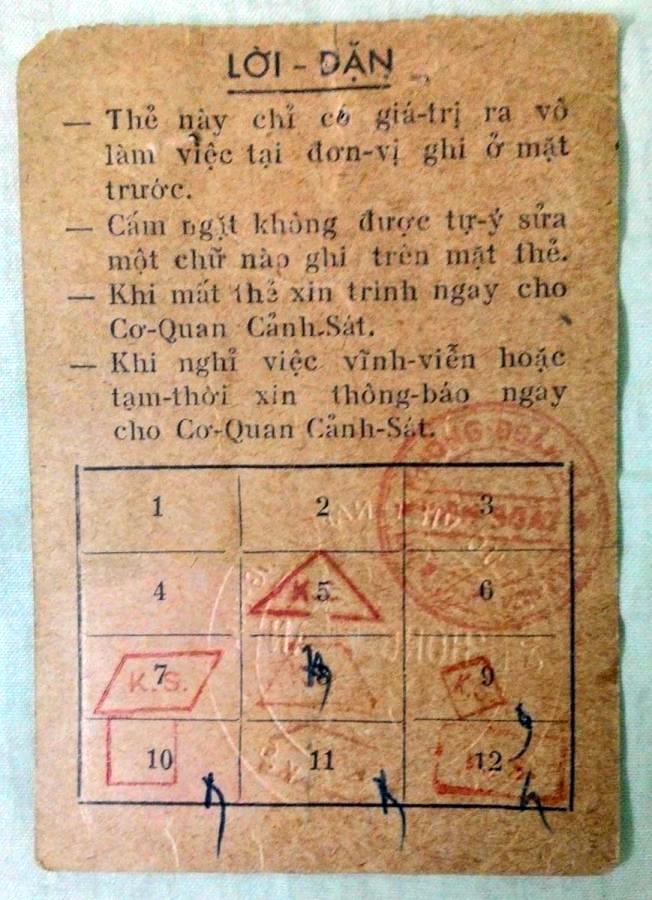 LỜI - DẶN
— Thẻ này chỉ có giá-trị ra vô
làm việc tại đơn-vị ghi ở mặt
trước.
— Cấm ngặt không được tự-ý sửa
một chữ nào ghi trên mặt thẻ.
— Khi mất thẻ xin trình ngay cho
Cơ-Quan Cảnh-Sát.
— Khi nghỉ việc vĩnh-viễn hoặc
tạm-thời xin thông-báo ngay
cho Cơ-Quan Cảnh-Sát.
1 2 3
4 5 6
7 8 9
K.S.
10 11 12